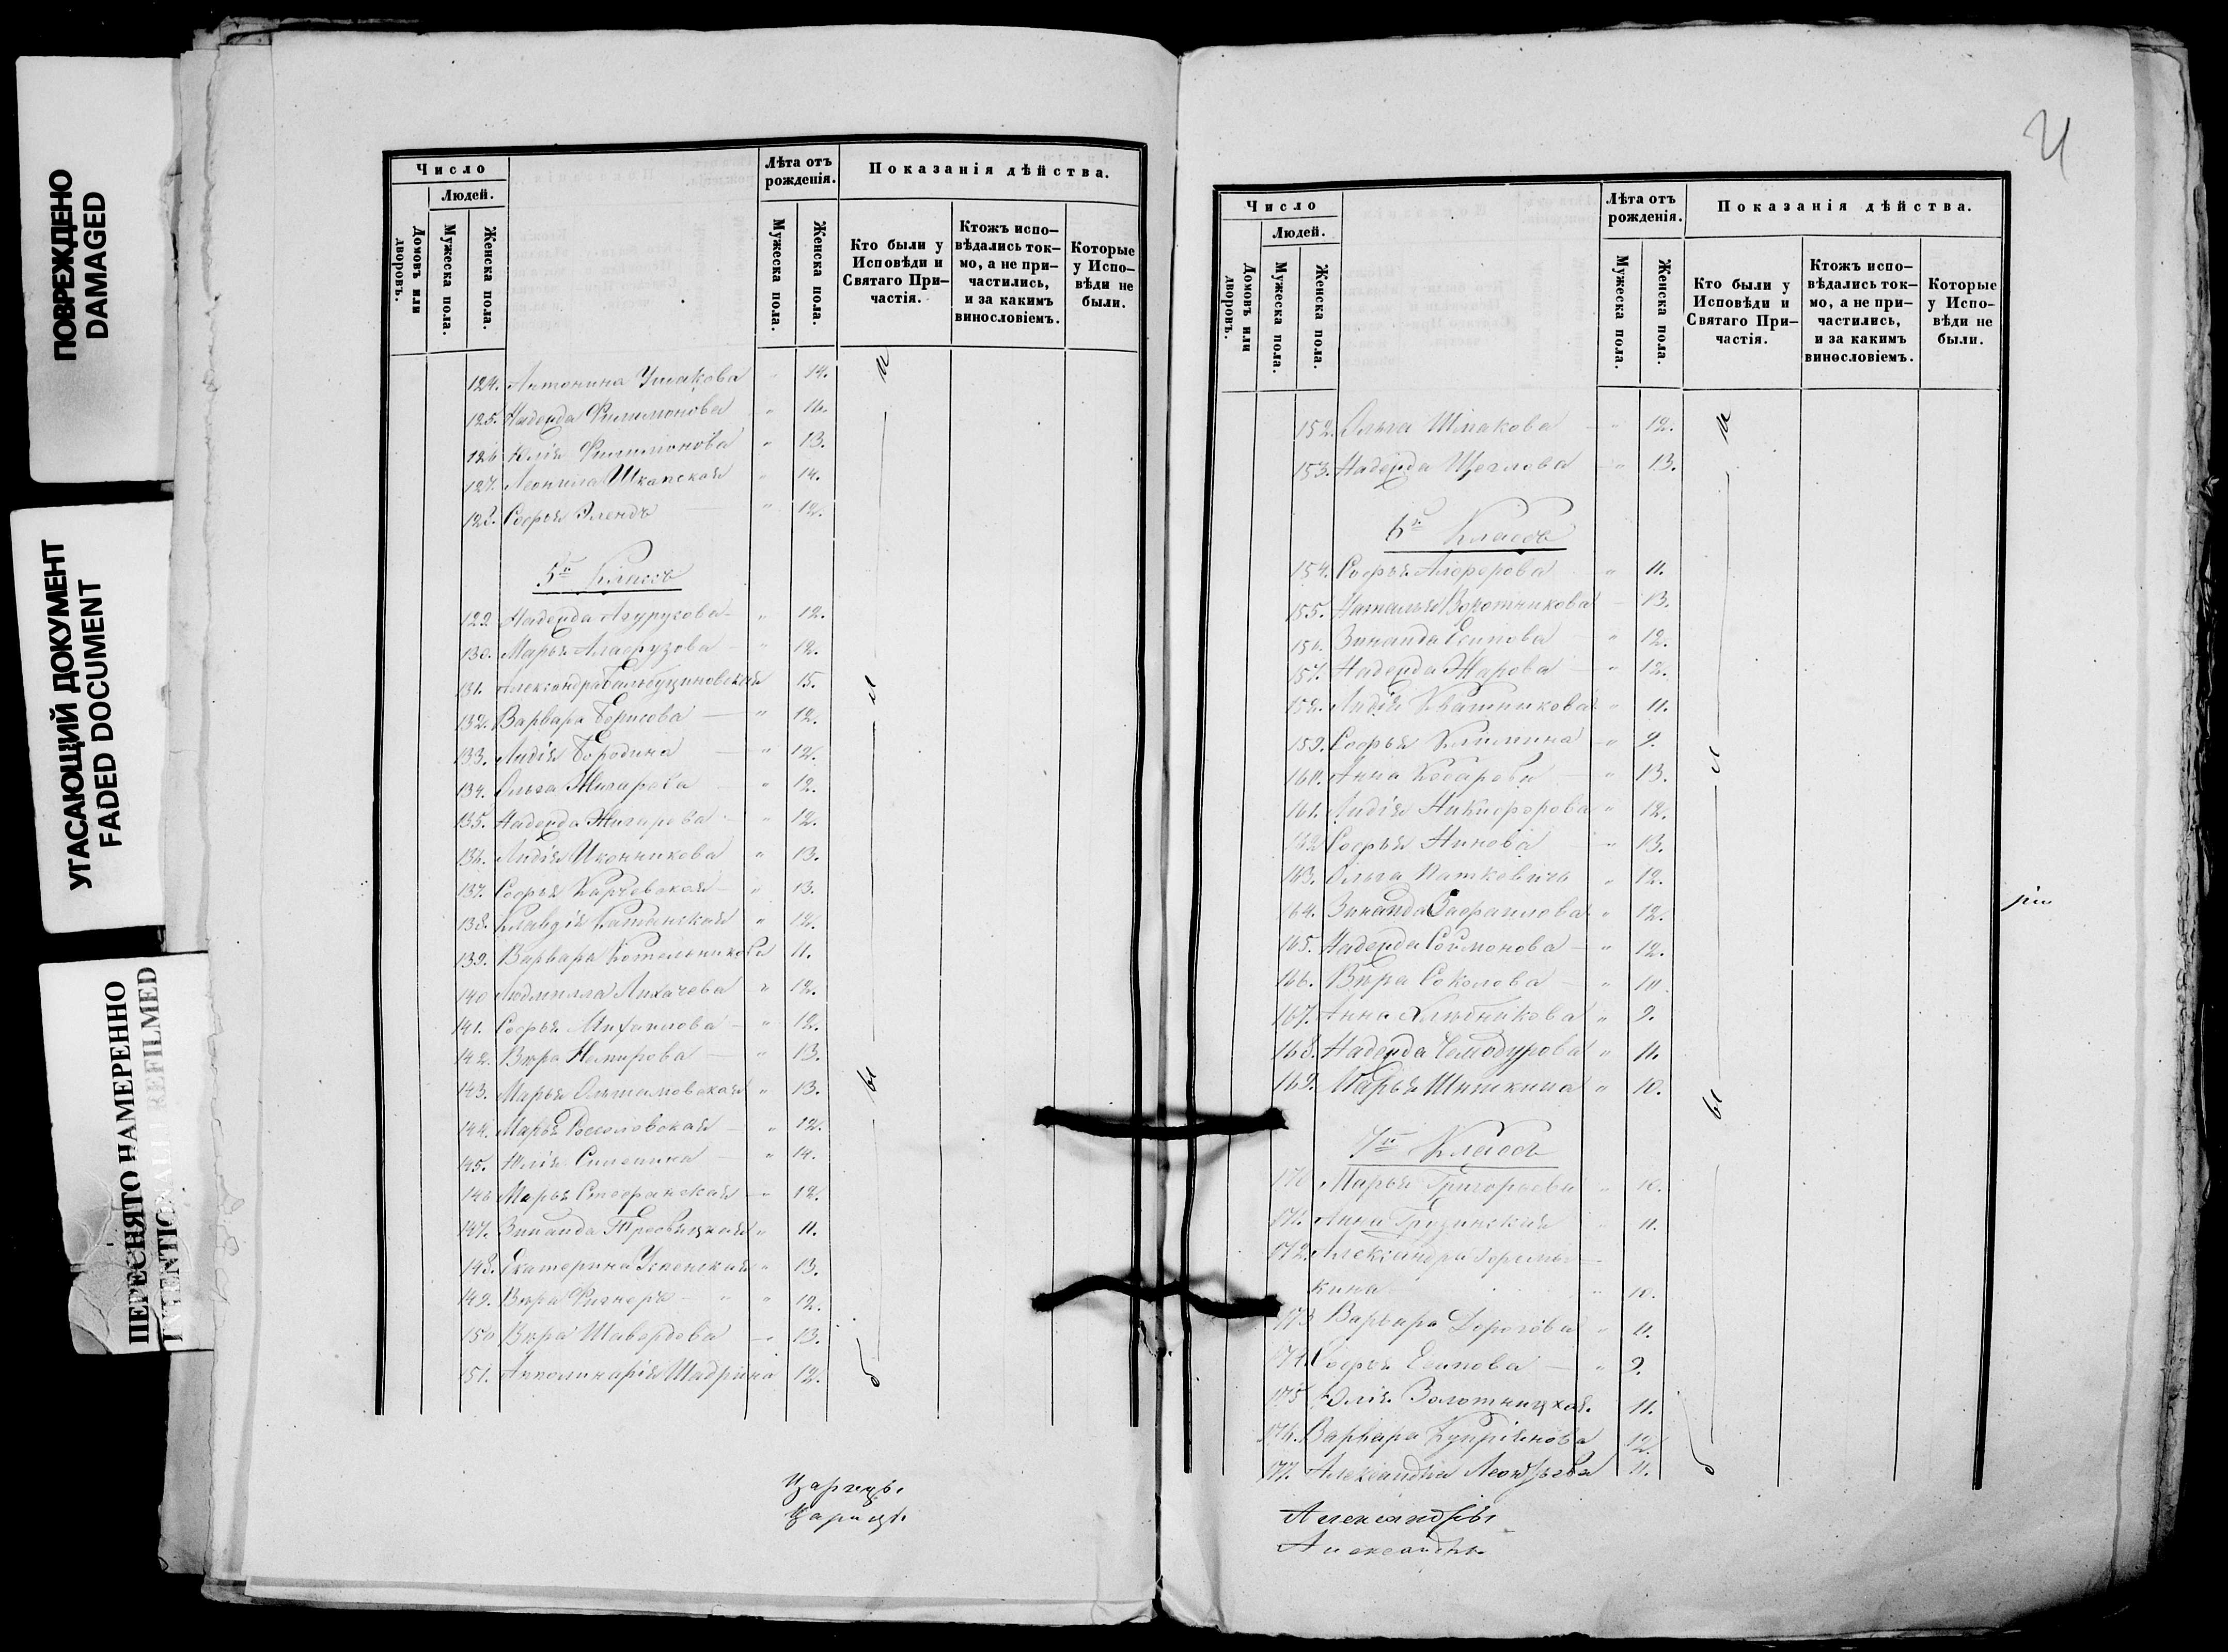 ПОВРЕЖДЕНО
DAMAGED
УГАСАЮЩИЙ ДОКУМЕНТ
FADED DOCUMENT
ПЕРЕСНЯТО НАМЕРЕННО
INTENTIONALLY REFILMED
Число
Людей.
Домовъ или дворовъ.
Мужеска пола.
Женска пола.
Лѣта отъ рожденія.
Мужеска пола.
Женска пола.
Показанія дѣйства.
Кто были у Исповѣди и Святаго При-частія.
Ктожъ испо-вѣдались ток-мо, а не при-частились, и за какимъ винословіемъ.
Которые у Испо-вѣди не были.
124. Антонина Ушакова " 14.
125. Надежда Филимонова " 11.
126. Юлія Филимонова " 13.
127. Леонилла Шкапская " 14.
128. Софья Элендъ " 12.
5й Классъ
129. Надежда Азурухова " 12.
130. Марья Алафузова " 12.
131. Александра 15.
132. Варвара Борисова " 12.
133. Лидія Бородина " 12.
134. Ольга Жигарева " 12.
135. Надежда Жигарева " 12.
136. Лидія Иконникова " 13.
137. Софья Карчевская " 13.
138. Клавдія " 12.
139. Варвара Котельникова 11.
140. Людмилла Лихачева " 12.
141. Софья Михаилова " 12.
142. Вѣра Немирова " 13.
143. Марья " 13.
144. Марья " 12.
145. Юлія " 14.
146. Марья Стефанская " 12.
147. Зинаида " 11.
148. Екатерина Успенская " 13.
149. Вѣра Фигнеръ " " 12.
150. Вѣра Шавердова " 13.
151. Апполинарія Шадрина 12.
были
Царицы
Царицѣ
21
Число
Людей.
Домовъ или дворовъ.
Мужеска пола.
Женска пола.
Лѣта отъ рожденія.
Мужеска пола.
Женска пола.
Показанія дѣйства.
Кто были у Исповѣди и Святаго При-частія.
Ктожъ испо-вѣдались ток-мо, а не при-частились, и за какимъ винословіемъ.
Которые у Испо-вѣди не были.
152. Ольга Шмакова " 12.
153. Надежда Щеглова " 13.
6й Классъ
154. Софья Алферова " 11.
155. Наталья Воротникова 13.
156. Зинаида Есипова " 12.
157. Надежда Жарова " 12.
158. Лидія Квашникова " 11.
159. Софья Климина " 9.
160. Анна " 13.
161. Лидія Никифорова " 12.
162. Софья " 13.
163. Ольга Паткевичъ " 12.
164. Зинаида " 12.
165. Надежда Соймонова " 12.
166. Вѣра Соколова " 10.
167. Анна Хлѣбникова " 9.
168. Надежда Чемодурова " 11.
169. Марья Шишкина " 10.
7й Классъ
170. Марья Григорьева " 10.
171. Анна Грузинская " 11.
172. Александра Горемы-
кина " 10.
173. Варвара Дорогова " 11.
174. Софья Есипова " 9.
175. Юлія Золотницкая 11.
176. Варвара Купріянова 12.
177. Александра Леонтьева 11.
были
Александры
Александрѣ